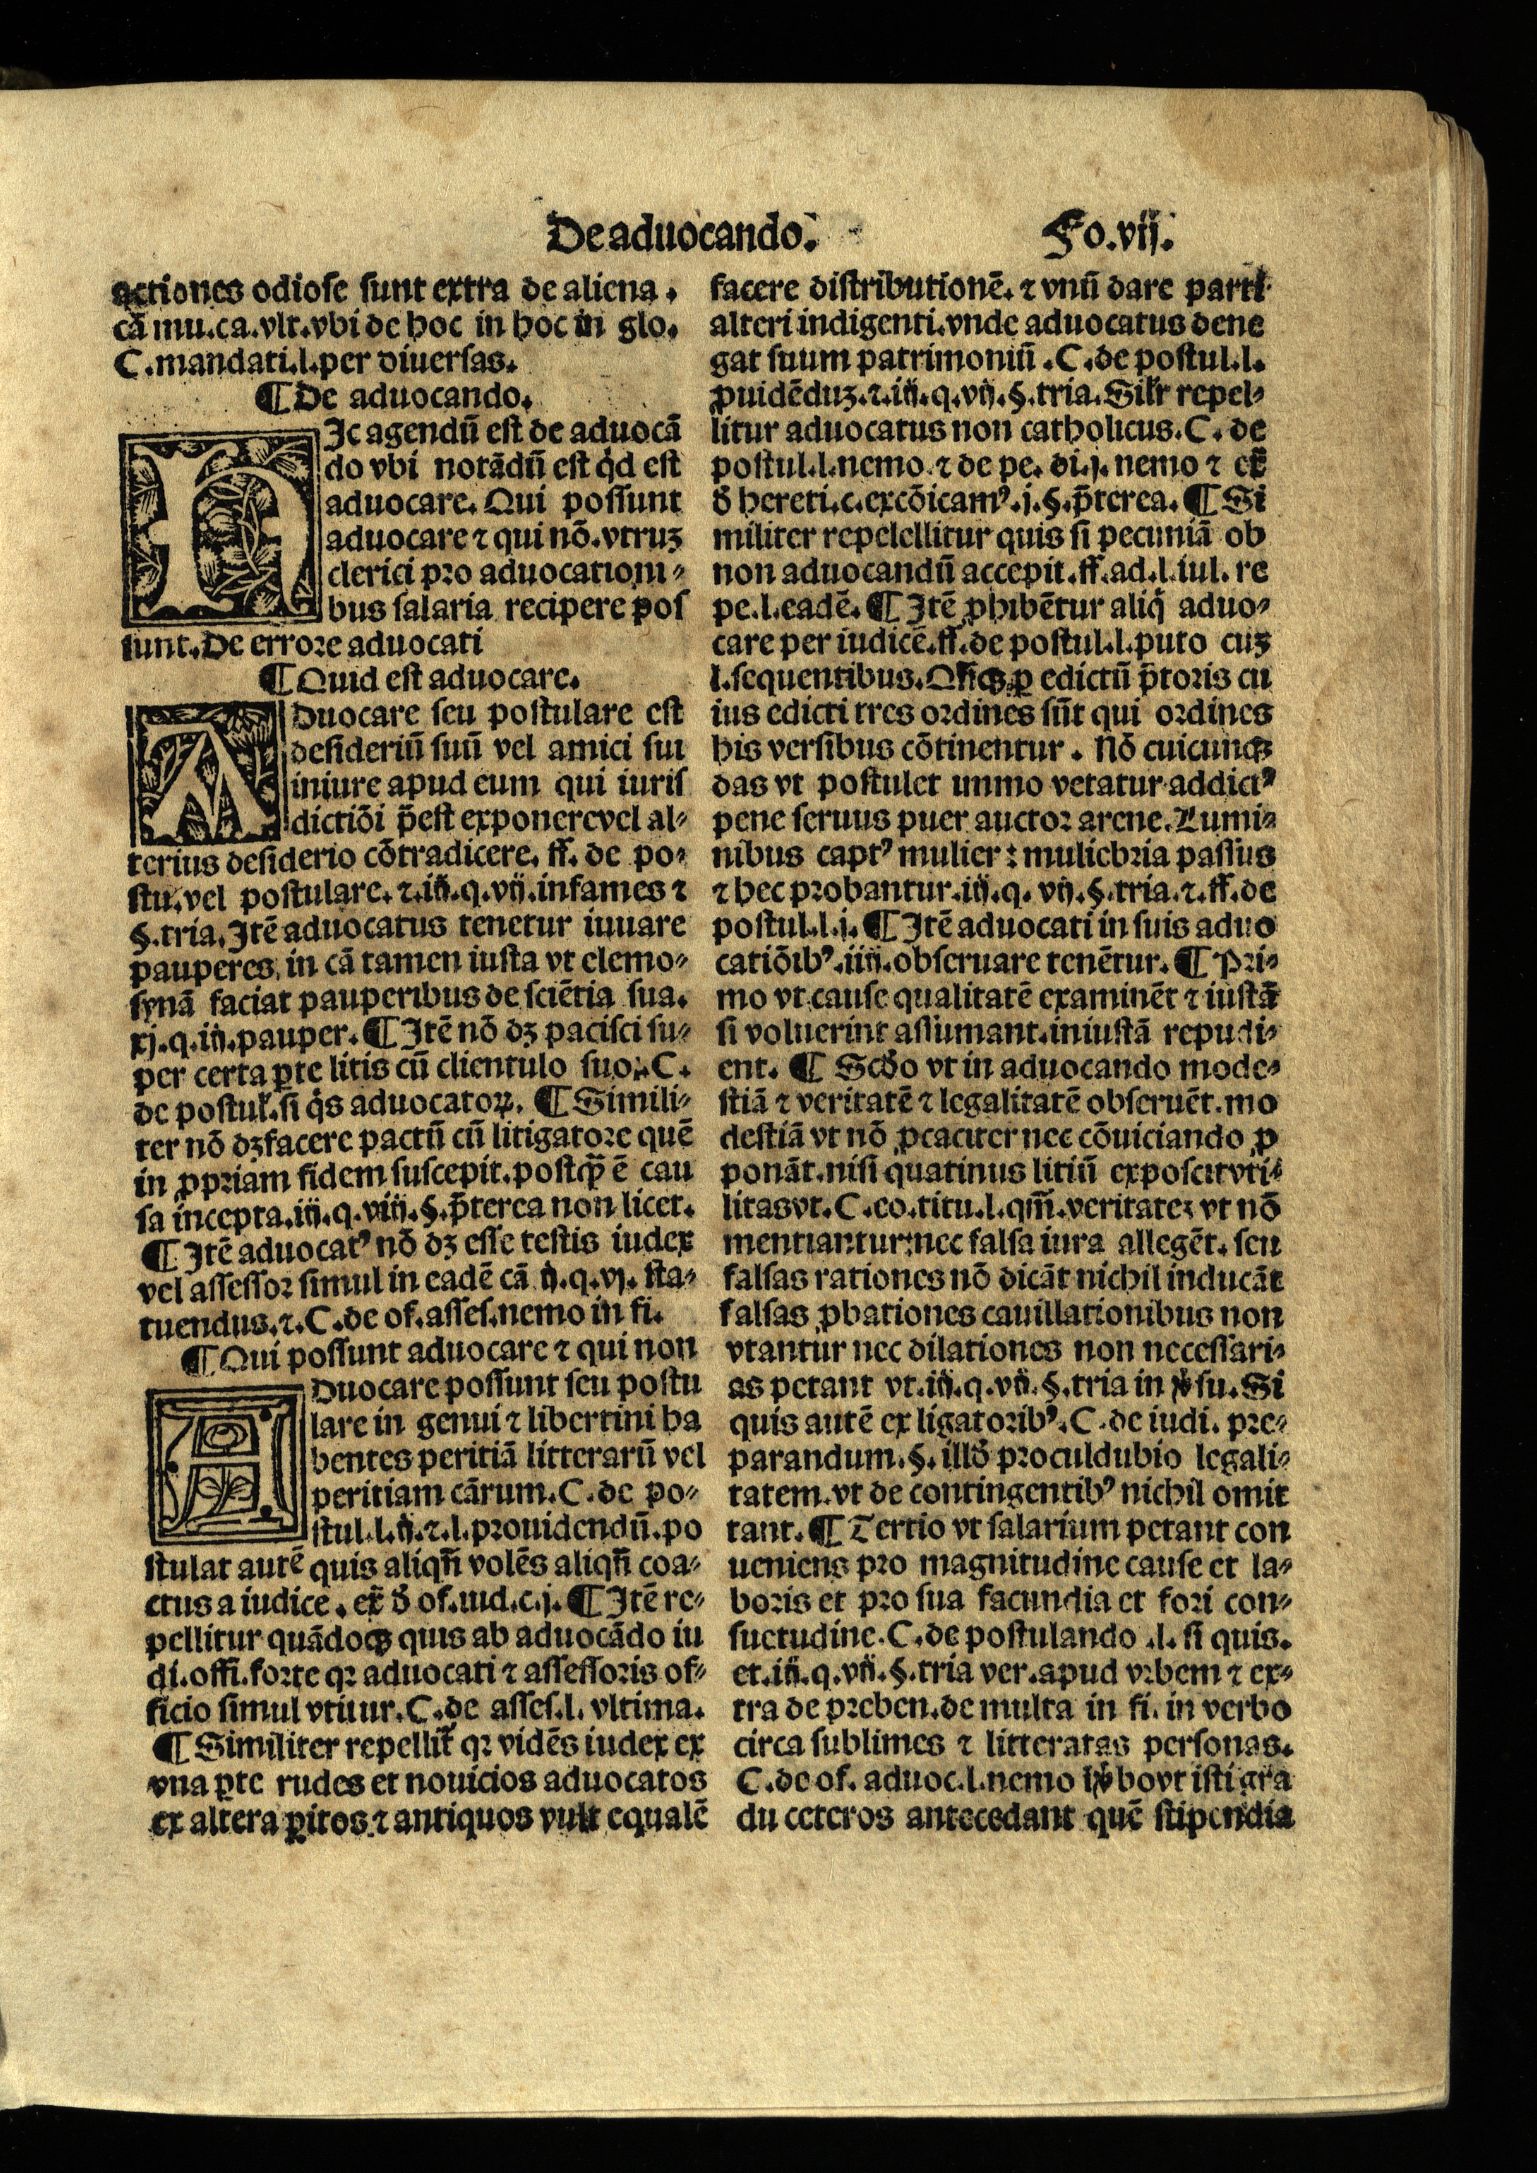 De aduocando. Fo.vij.
actiones odiose sunt extra de aliena.
cā mu.ca.vlt.vbi de hoc in hoc in glo.
C.mandati.l.per diuersas.
¶ De aduocando.
HIc agendū est de aduocā
do vbi notādū est qd est
aduocare. Qui possunt
aduocare ⁊ qui nō.vtruꝫ
clerici pro aduocationi-
bus salaria recipere pos
sunt.De errore aduocati
¶ Quid est aduocare.
ADuocare seu postulare est
desideriū suū vel amici sui
iniure apud eum qui iuris
dictiōi p̄est exponerevel al-
terius desiderio cōtradicere. ff. de po-
stu.vel postulare.⁊.iij.q.vij.infames ⁊
§.tria.Itē aduocatus tenetur iuuare
pauperes in cā tamen iusta vt elemo-
synā faciat pauperibus de sciētia sua.
xj.q.iij.pauper.¶ Itē nō dꝫ pacisci su-
per certa ꝑte litis cū clientulo suo.C.
de postul.si qs aduocatoꝝ. ¶ Simili-
ter nō dꝫfacere pactū cū litigatore quē
in ꝓpriam fidem suscepit.postqꝫ ē cau
sa incepta.iij.q.viij.§.p̄terea non licet.
¶ Itē aduocatꝰ nō dꝫ esse testis iudex
vel assessor simul in eadē cā ij.q.vj. sta-
tuendus.⁊.C.de of.asses.nemo in fi.
¶ Qui possunt aduocare ⁊ qui non
ADuocare possunt seu postu
lare in genui ⁊ libertini ha
bentes peritiā litterarū vel
peritiam cārum.C.de po-
stul.l.ij.⁊.l.prouidendū.po
stulat autē quis aliqn̄ volēs aliqn̄ coa-
ctus a iudice. ex̄ đ of.iud.c.j.¶ Itē re-
pellitur quādoqꝫ quis ab aduocādo iu
di.offi.forte qꝛ aduocati ⁊ assessoris of-
ficio simul vtitur.C.de asses.l. vltima.
¶ Similiter repellit̄ qꝛ vidēs iudex ex
vna ꝑte rudes et nouicios aduocatos
ex altera ꝑitos.⁊ antiquos vult equalē
facere distributionē.⁊ vnū dare parti
alteri indigenti.vnde aduocatus dene
gat suum patrimoniū.C.de postul.l.
ꝓuidēduꝫ.⁊.iij.q.vij.§.tria.Silr repel-
litur aduocatus non catholicus.C. de
postul.l.nemo.⁊ de pe. di.j. nemo ⁊ ex̄
đ hereti.c.excōicamꝰ.j.§.p̄terea.¶ Si
militer repelellitur quis si pecuniā ob
non aduocandū accepit.ff.ad.l.iul. re
pe.l.eadē.¶ Itē ꝓhibētur aliq aduo-
care per iudicē.ff.de postul.l.puto cuꝫ
l.sequentibus. ꝑ edictū p̄toris cu
ius edicti tres ordines sūt qui ordines
his versibus cōtinentur. Nō cuicunqꝫ
das vt postulet immo vetatur addictꝰ
pene seruus puer auctor arene.Lumi-
nibus captꝰ mulier: muliebria passus
⁊ hec probantur.iij.q. vij.§.tria.⁊.ff.de
postul.l.j.¶ Itē aduocati in suis aduo
catiōibꝰ.iiij.obseruare tenētur.¶ Pri-
mo vt cause qualitatē examinēt ⁊ iustā
si voluerint assumant.iniustā repudi-
ent. ¶ Scđo vt in aduocando mode-
stiā ⁊ veritatē ⁊ legalitatē obseruēt.mo
destiā vt nō ꝓcaciter nec cōuiciando ꝓ
ponāt.nisi quatinus litiū exposcit vti-
litasvt.C.eo.titu.l.qm̄.veritateꝫ vt nō
mentiantur:nec falsa iura allegēt. seu
falsas rationes nō dicāt nichil inducāt
falsas ꝓbationes cauillationibus non
vtantur nec dilationes non necessari-
as petant vt.iij.q.vij.§.tria in ꝟsu.Si
quis autē ex ligatoribꝰ.C.de iudi. pre-
parandum.§.illđ proculdubio legali-
tatem.vt de contingentibꝰ nichil omit
tant.¶ Tertio vt salarium petant con
ueniens pro magnitudine cause et la-
boris et pro sua facundia et fori con-
suetudine.C.de postulando .l. si quis.
et.iij.q.vij.§.tria ver.apud vrbem ⁊ ex-
tra de preben.de multa in fi. in verbo
circa sublimes ⁊ litteratas personas.
C.de of. aduoc.l.nemo bovt isti gra
du ceteros antecedant quē stipendia